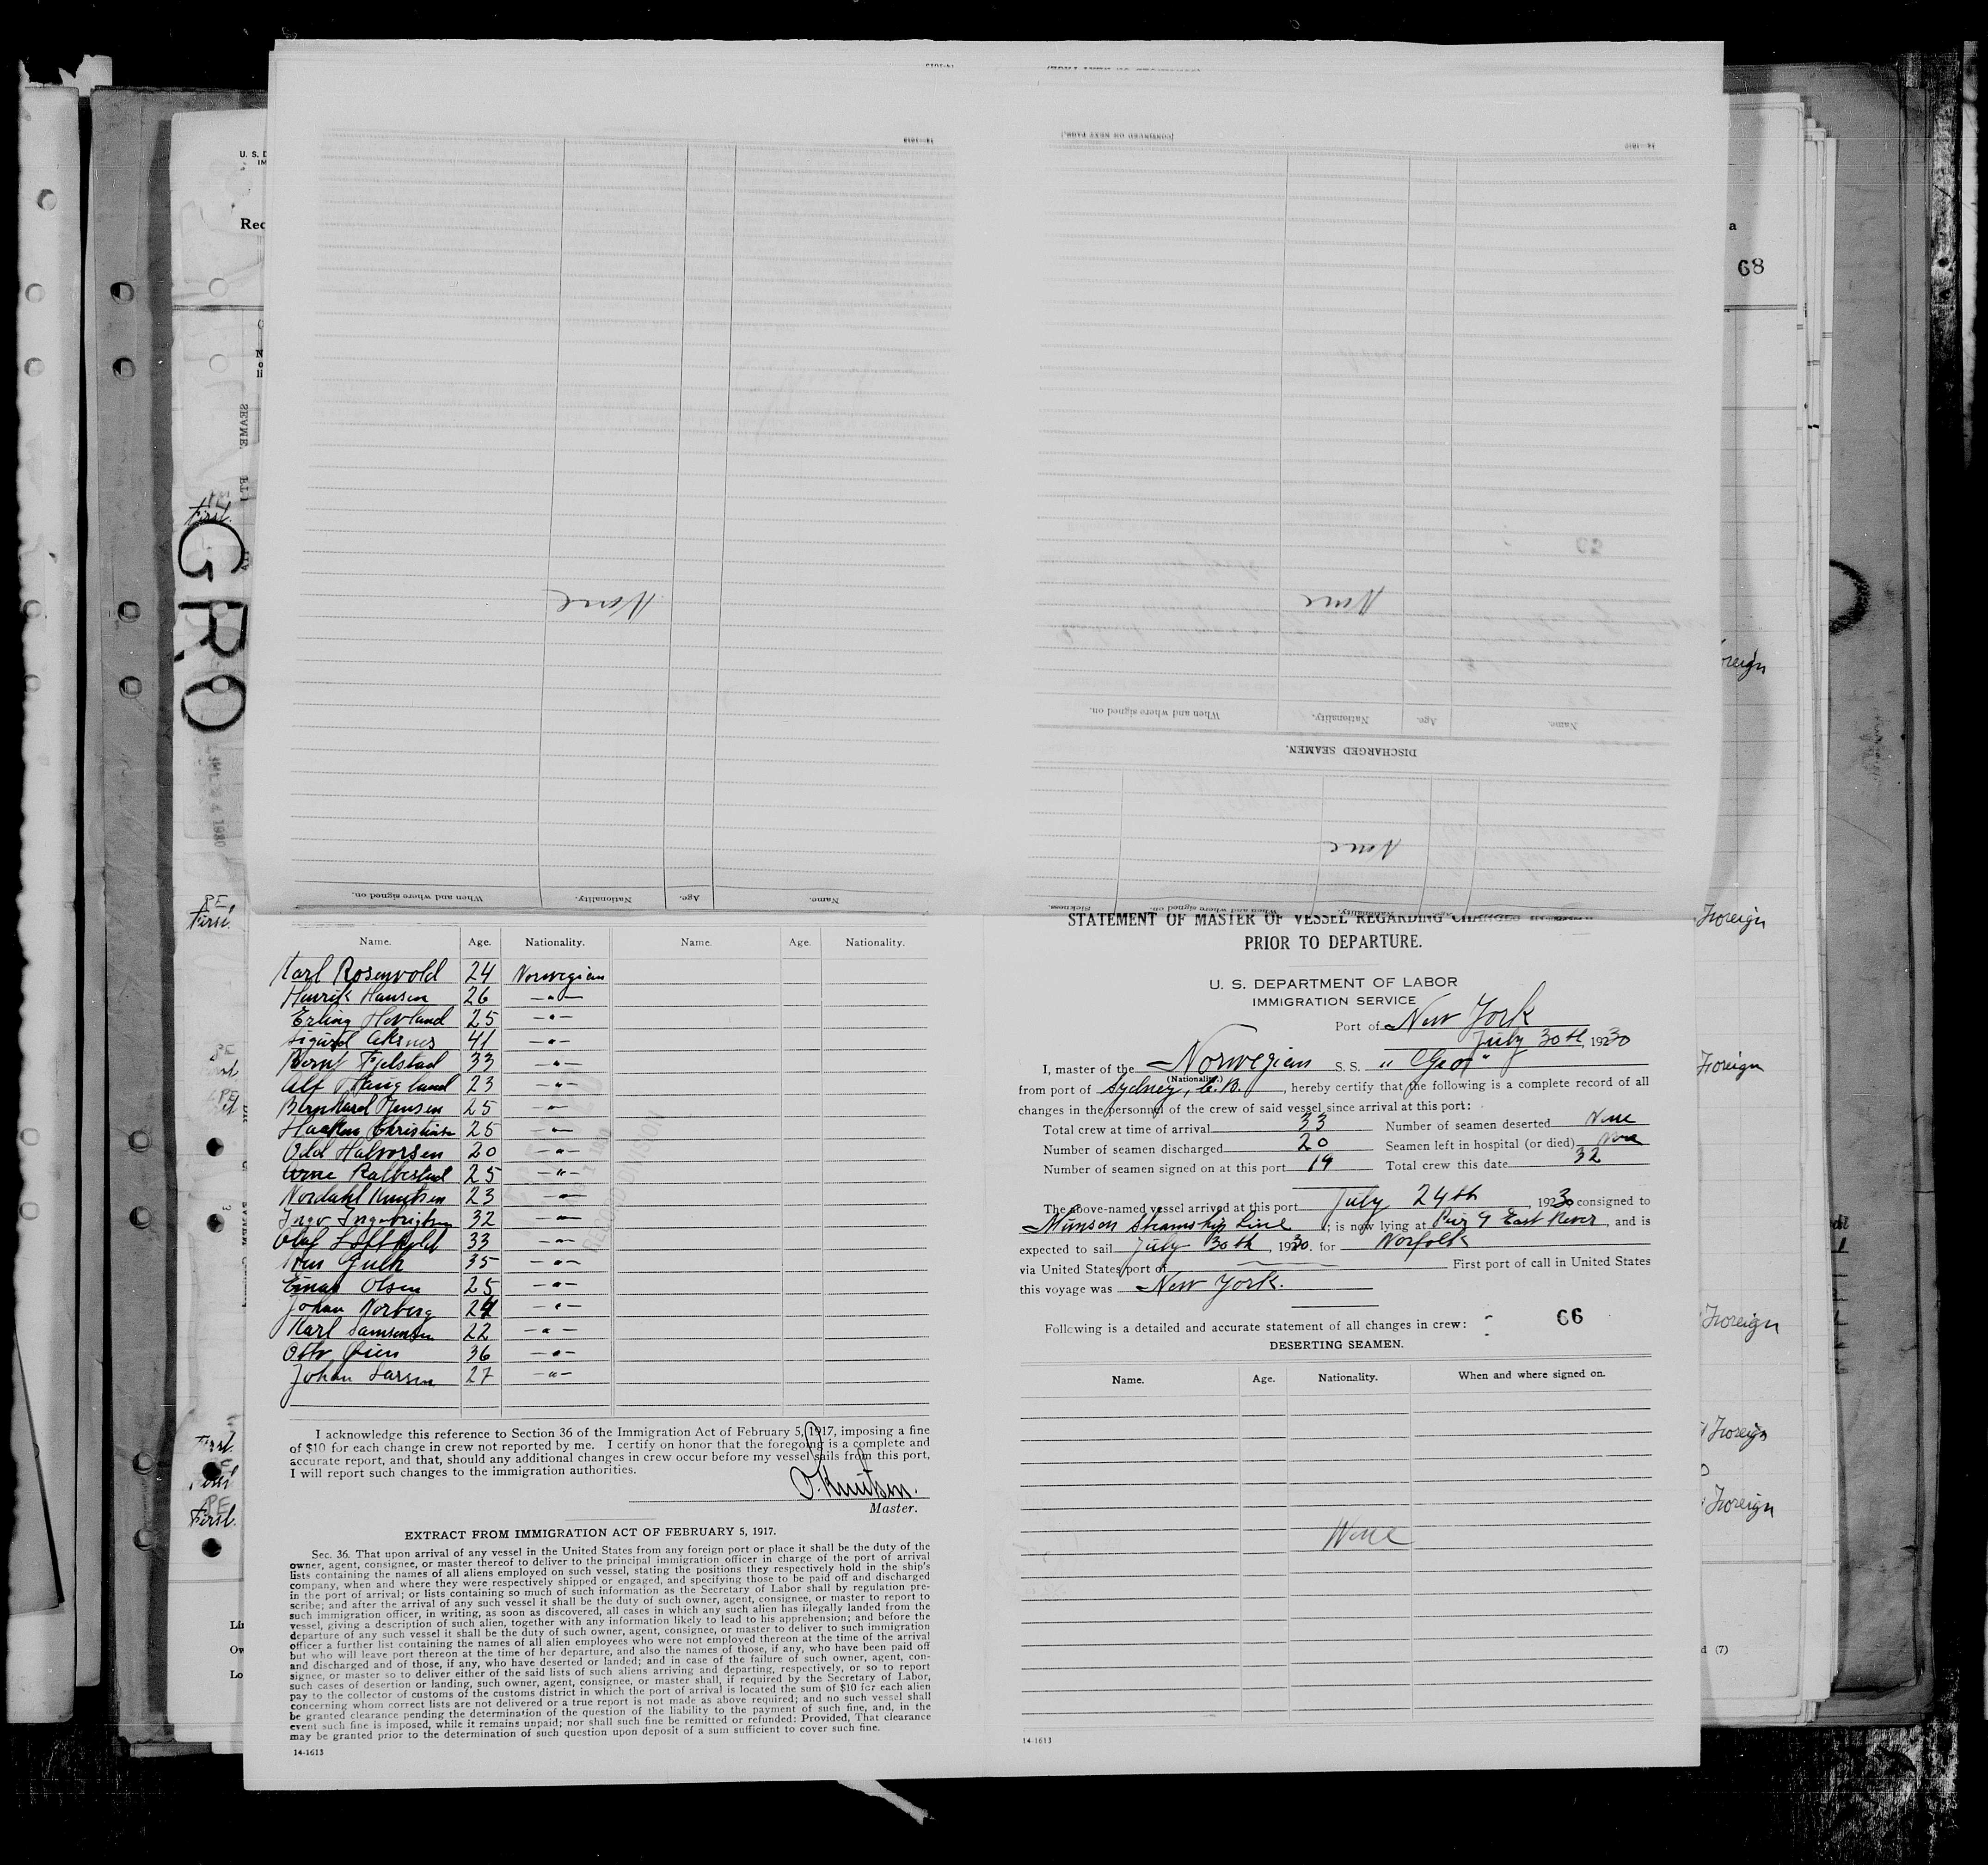 68
None
None
None
DISCHARGED SEAMEN.
Name. Age. Nationality. When and where signed on.
[CONTINUED ON NEXT PAGE.]
Name. Age. Nationality. When and where signed on.
Name. Age. Nationality. Name. Age. Nationality.
Karl Rosenvold 24 Norwegian
Henrik Hansen 26 -"-
Erling Hovland 25 -"-
Sigurd Aksnes 41 -"-
Bernt Fjelstad 33 -"-
Alf Haugland 23 -"-
Bernhard Jensen 25 -"-
Haakon Christians 25 -"-
Odd Halvorsen 20 -"-
Arne 25 -"-
Nordahl Knutsen 23 -"-
Ingv Ingebrigtsen 32 -"-
Olaf 33 -"-
35 -"-
Einar Olsen 25 -"-
Johan Norberg 24 -"-
Karl Samsonsen 22 -"-
Otto Øien 36 -"-
Johan Larsen 27 -"-
I acknowledge this reference to Section 36 of the Immigration Act of February 5, 1917, imposing a fine
of $10 for each change in crew not reported by me. I certify on honor that the foregoing is a complete and
accurate report, and that, should any additional changes in crew occur before my vessel sails from this port,
I will report such changes to the immigration authorities.
O. Knutsen.
Master.
EXTRACT FROM IMMIGRATION ACT OF FEBRUARY 5, 1917.
Sec. 36. That upon arrival of any vessel in the United States from any foreign port or place it shall be the duty of the
owner, agent, consignee, or master thereof to deliver to the principal immigration officer in charge of the port of arrival
lists containing the names of all aliens employed on such vessel, stating the positions they respectively hold in the ship's
company, when and where they were respectively shipped or engaged, and specifying those to be paid off and discharged
in the port of arrival; or lists containing so much of such information as the Secretary of Labor shall by regulation pre-
scribe; and after the arrival of any such vessel it shall be the duty of such owner, agent, consignee, or master to report to
such immigration officer, in writing, as soon as discovered, all cases in which any such alien has illegally landed from the
vessel, giving a description of such alien, together with any information likely to lead to his apprehension; and before the
departure of any such vessel it shall be the duty of such owner, agent, consignee, or master to deliver to such immigration
officer a further list containing the names of all alien employees who were not employed thereon at the time of the arrival
but who will leave port thereon at the time of her departure, and also the names of those, if any, who have been paid off
and discharged and of those, if any, who have deserted or landed; and in case of the failure of such owner, agent, con-
signee, or master so to deliver either of the said lists of such aliens arriving and departing, respectively, or so to report
such cases of desertion or landing, such owner, agent, consignee, or master shall, if required by the Secretary of Labor,
pay to the collector of customs of the customs district in which the port of arrival is located the sum of $10 for each alien
concerning whom correct lists are not delivered or a true report is not made as above required; and no such vessel shall
be granted clearance pending the determination of the question of the liability to the payment of such fine, and, in the
event such fine is imposed, while it remains unpaid; nor shall such fine be remitted or refunded: Provided, That clearance
may be granted prior to the determination of such question upon deposit of a sum sufficient to cover such fine.
14-1613
STATEMENT OF MASTER OF VESSEL REGARDING CHANGES
PRIOR TO DEPARTURE.
U. S. DEPARTMENT OF LABOR
IMMIGRATION SERVICE
Port of New York
July 30th, 1930
I, master of the Norwegian S. S. "Gro"
(Nationality.)
from port of Sydney, C. B., hereby certify that the following is a complete record of all
changes in the personnel of the crew of said vessel since arrival at this port:
Total crew at time of arrival 33 Number of seamen deserted None
Number of seamen discharged 20 Seamen left in hospital (or died) None
Number of seamen signed on at this port 19 Total crew this date 32
The above-named vessel arrived at this port July 24th, 1930 consigned to
Munson Steamship Line; is now lying at Pier 9 East River, and is
expected to sail July 30th, 1930. for Norfolk
via United States port of First port of call in United States
this voyage was New York.
Following is a detailed and accurate statement of all changes in crew: 66
DESERTING SEAMEN.
Name. Age. Nationality. When and where signed on.
None
14-1613
GRO
First.
First.
First.
First.
Foreign
Foreign
Foreign
Foreign
Foreign